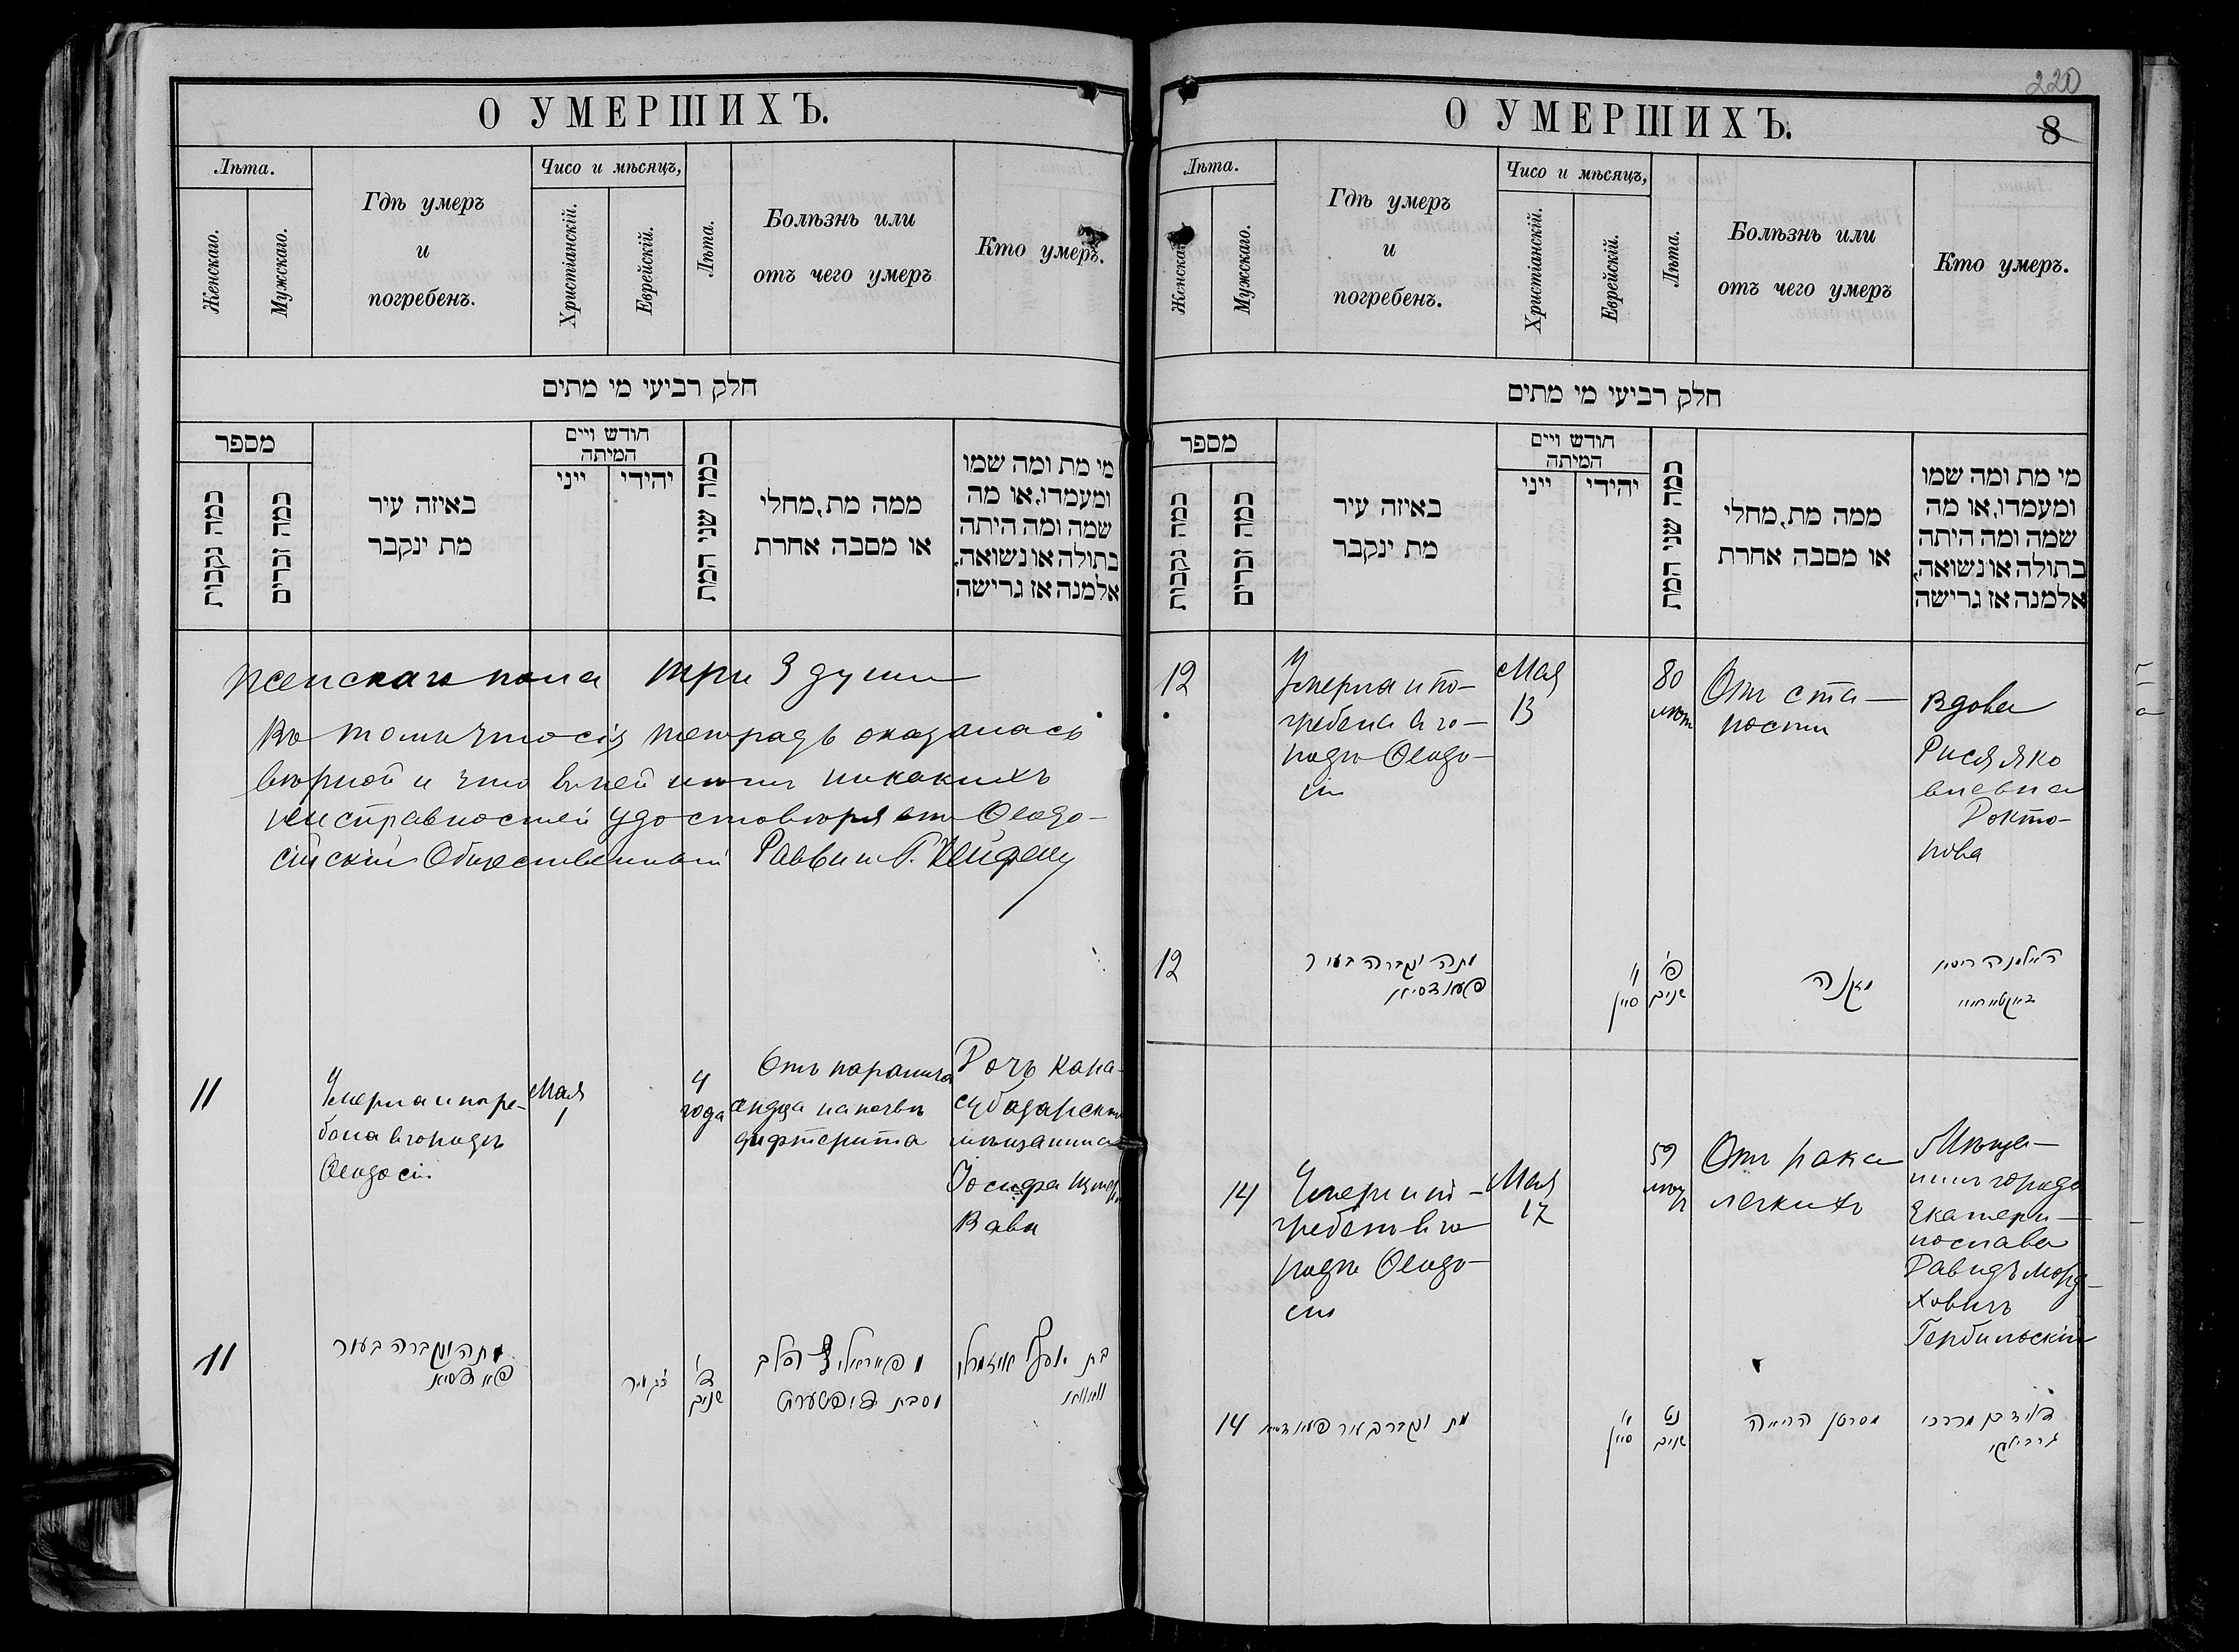 О УМЕРШИХЪ.
Лѣта.
Женскаго.
Мужскаго.
Гдѣ умеръ
и
погребенъ.
Чисо и мѣсяцъ,
Христіанскій.
Еврейскій.
Лѣта.
Болѣзнь или
отъ чего умеръ
Кто умеръ.
חלק רביעי מי מתים
מספר
כמה נקבות
כמה זכרים
באיזה עיר
מת ינקבר
חודש ויים
המיתה
ייני
יהידי
כמה שני המת
ממה מת, מחלי
או מסבה אחרת
מי מת ומה שמו
ומעמדו, או מה
שמה ומה היתה
בתולה או נשואה,
אלמנה אז גרישה
женскаго пола три 3 души
Въ томъ что сія тетрадь оказалась
вѣрной и что въ ней нѣтъ никакихъ
неисправностей удостовѣряетъ Ѳеодо-
сійскій Общественный Раввинъ
11
Умерла и погре-
бена въ городѣ
Ѳеодосіи
Мая
1
4
года
Отъ паралича
сердца на почвѣ
дифтерита
Дочь кара-
субазарскаго
мѣщанина
Іосифа
11
מתה ונקברה בעיר
שנים
מסבת דיפטעריט
בת יוסף
О УМЕРШИХЪ.
220
8
Лѣта.
Женскаго.
Мужскаго.
Гдѣ умеръ
и
погребенъ.
Чисо и мѣсяцъ,
Христіанскій.
Еврейскій.
Лѣта.
Болѣзнь или
отъ чего умеръ
Кто умеръ.
חלק רביעי מי מתים
מספר
כמה נקבות
כמה זכרים
באיזה עיר
מת ינקבר
חודש ויים
המיתה
ייני
יהידי
כמה שני המת
ממה מת, מחלי
או מסבה אחרת
מי מת ומה שמו
ומעמדו, או מה
שמה ומה היתה
בתולה או נשואה,
אלמנה אז גרישה
12
Умерла и по-
гребена въ го-
родѣ Ѳеодо-
сіи
Мая
13
80
лѣтъ
Отъ ста-
рости
Вдова
Рися Яко
влевна
Докто-
рова
12
מתה ונקברה בעיר
סיון
פ'
שנים
מזקנה
האלמנה ריסא
14
Умеръ и по-
гребенъ въ го
родѣ Ѳеодо-
сіи
Мая
17
59
лѣтъ
Отъ рака
легкихъ
Мѣща-
нинъ города
Екатери-
нослава
Давидъ Морд-
ховичъ
Гербильскій
14
מת ונקבר בעיר
סיון
נט
שנים
מסרטן הריאה
דוד בן מרדכי